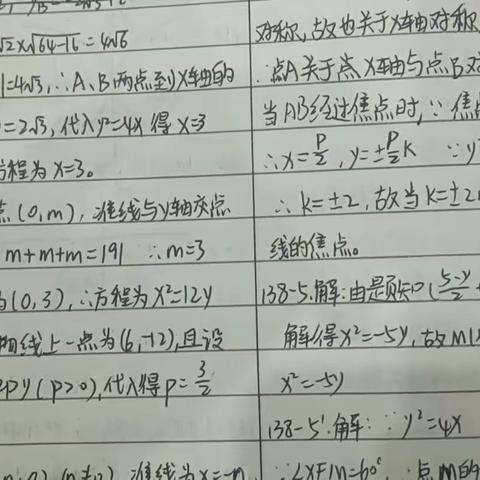 √2×√64-16=4√6
|=4√3,∴A、B两点到X轴的
=2√3,代入y²=4x 得 x=3
方程为 x=3。
点(0,m),准线与y轴交点
m+m+m=|9| ∴m=3
(0,3),∴方程为x²=12y
物线上一点为(6,-12),且设
2py(p>0),代入得p=3/2
准线为x=-n
对称,故也关于X轴对称
∴点A关于点X轴与点B对
当AB经过焦点时,∵焦
∴x=P/2,y=±P/2k ∵y
∴k=±2,故当k=±2
线的焦点。
138-5.解:由题知(5-y/2
解得x²=-5y,故M
x²=-5y
138-5'.解:∵y²=4x
∵∠XFM=60° ∴点M的